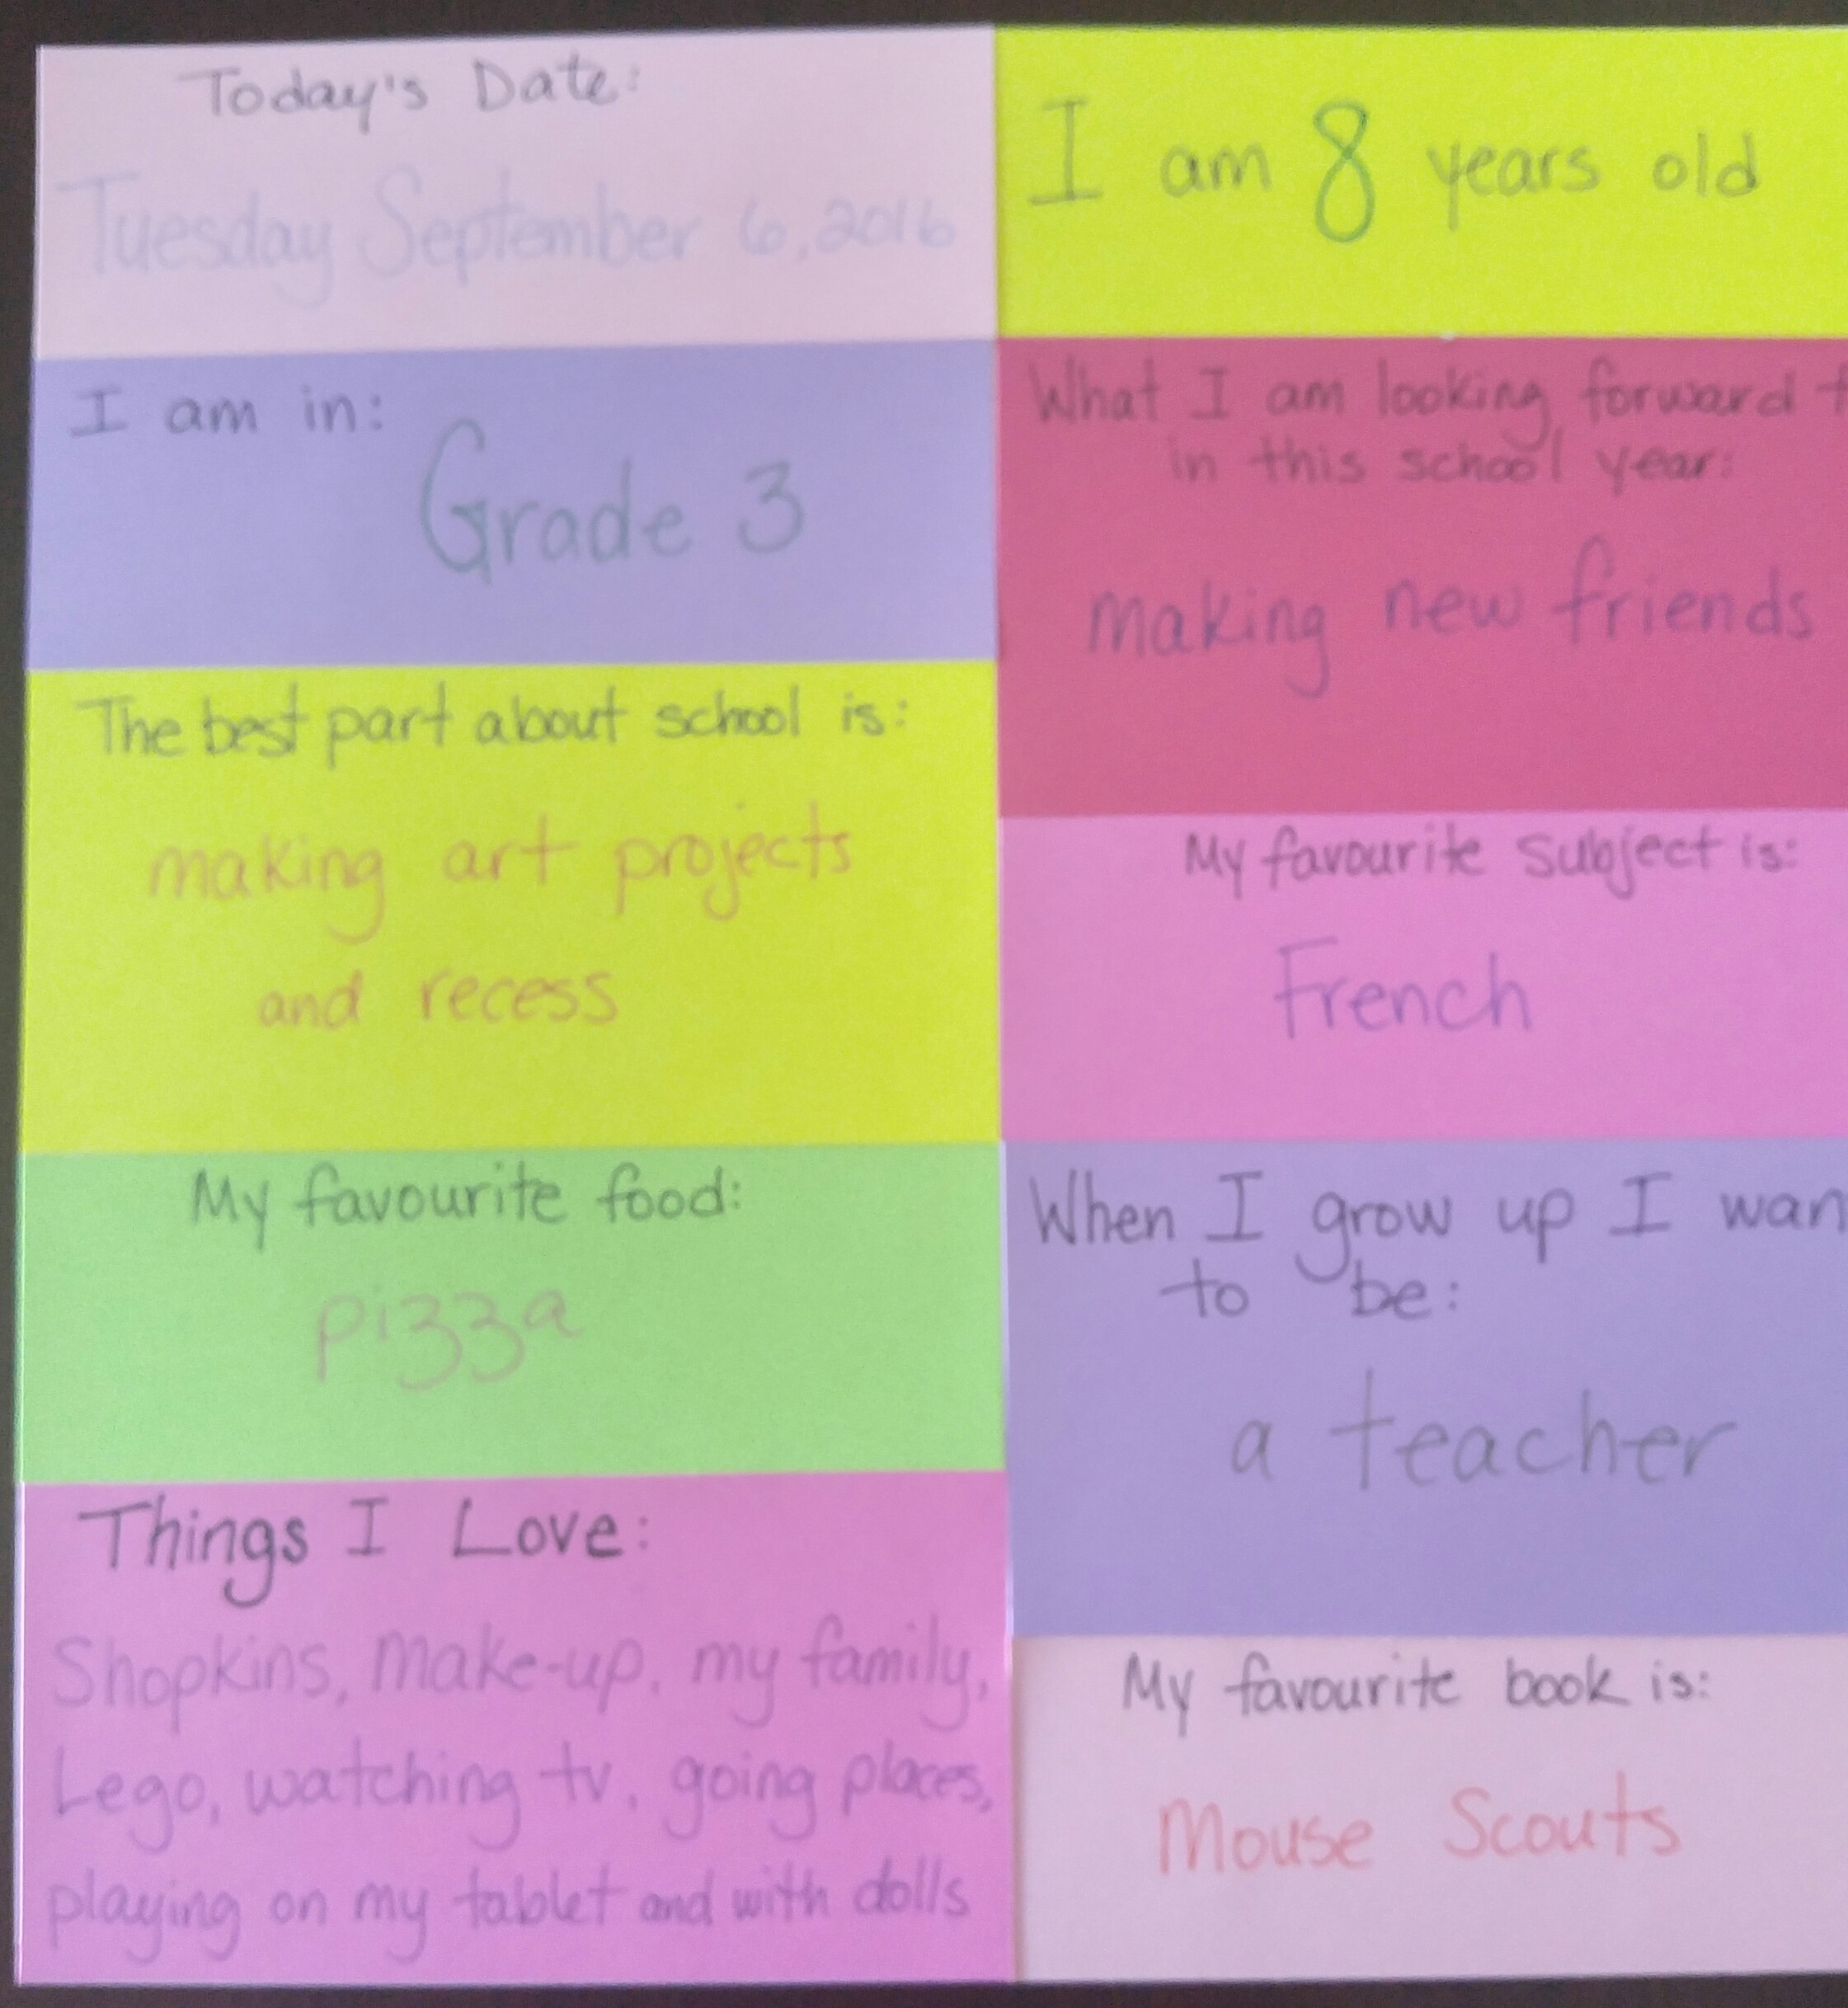 Today's Date:
Tuesday September 6, 2016
I am in:
Grade 3
The best part about school is:
making art projects
and recess
My favourite food:
pizza
Things I Love:
Shopkins, Make-up, my family,
Lego, watching tv, going places,
playing on my tablet and with dolls
I am 8 years old
What I am looking forward
in this school year:
making new friends
My favourite subject is:
French
When I grow up I
to be:
a teacher
My favourite book is:
Mouse Scouts